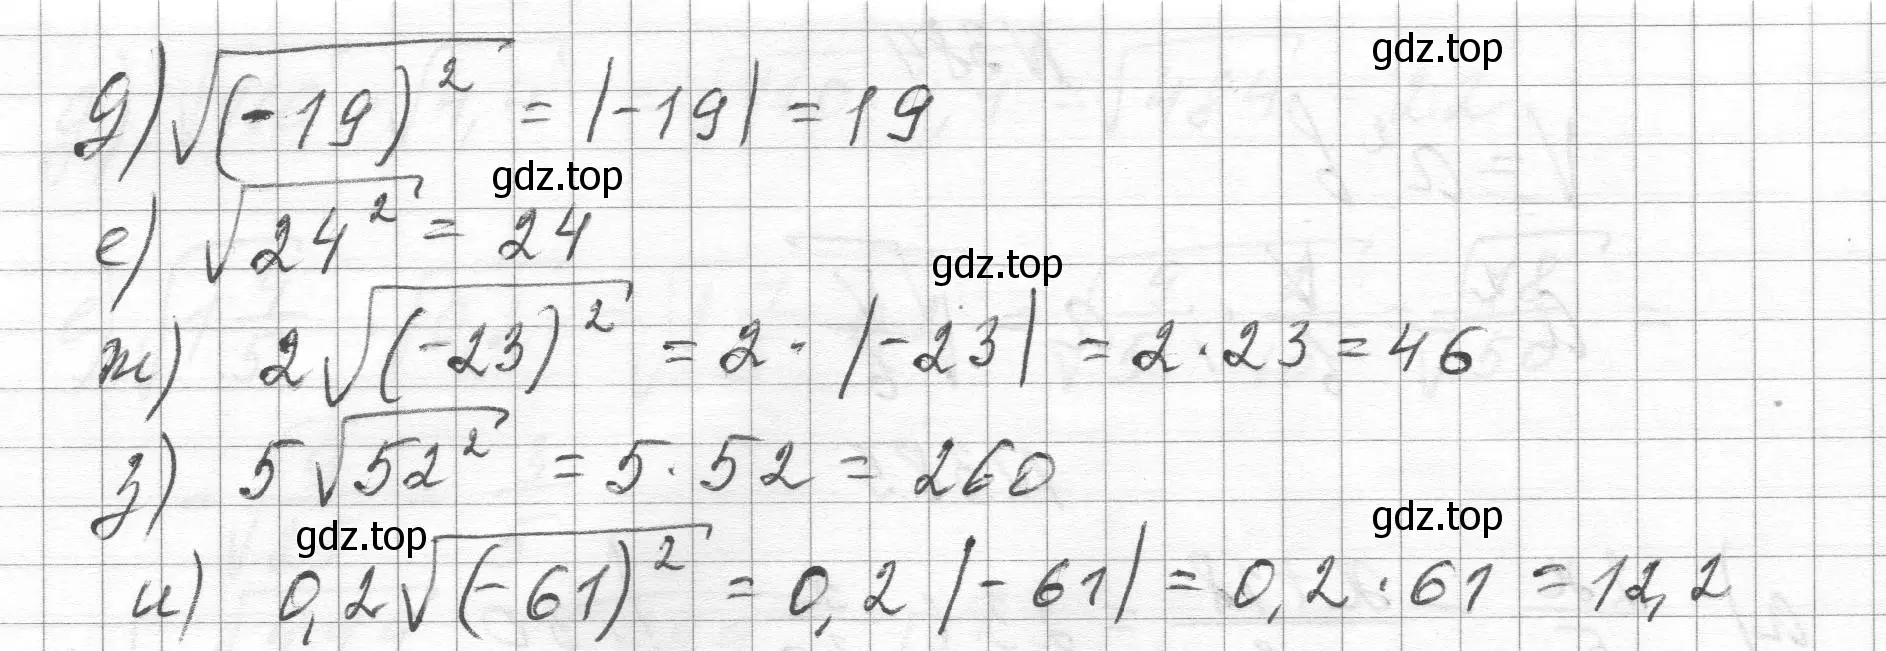 gdz.top
д) √(-19)² = |-19| = 19
gdz.top
е) √24² = 24
gdz.top
ж) 2√(-23)² = 2 · |-23| = 2 · 23 = 46
з) 5√52² = 5 · 52 = 260
gdz.top
gdz.top
и) 0,2√(-61)² = 0,2 |-61| = 0,2 · 61 = 12,2